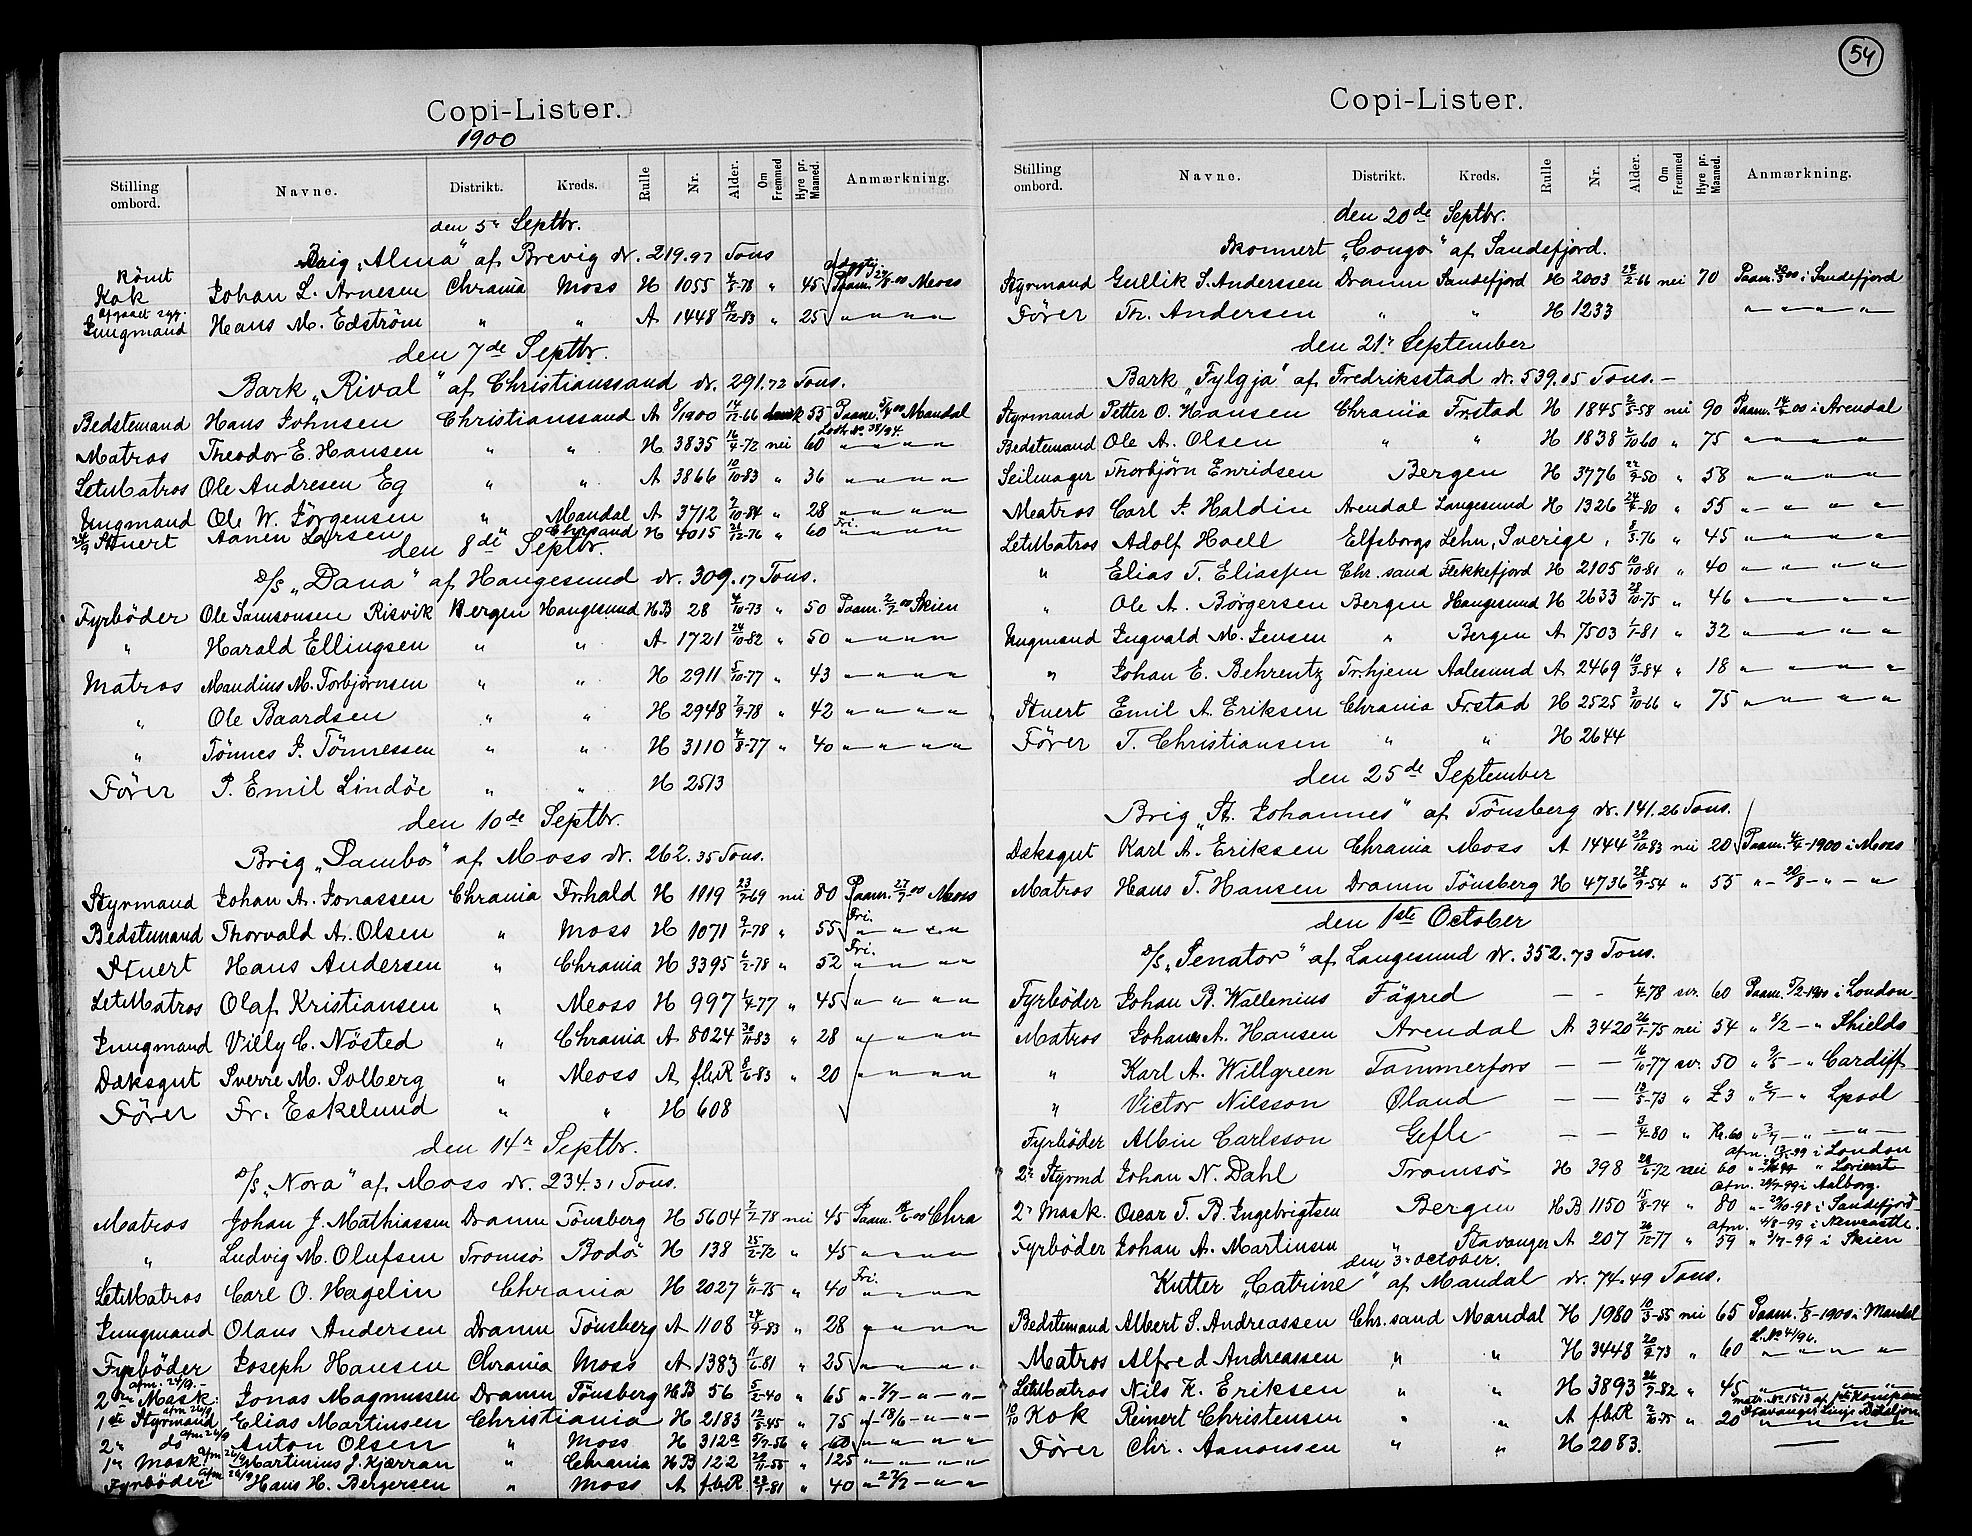 Copi-Lister.
1900
Stilling ombord. Navne. Distrikt. Kreds. Rulle Nr. Alder. Om Fremmed Hyre pr. Maaned. Anmærkning.
den 5te Septbr.
Brig „Alma" af Brevig dr. 219.97 Tons
Römt
Kok Johan L. Arnesen Chrania Moss H 1055 " 45 Moss
Afgaaet syg.
Jungmand Hans M. Edström " " A 1448 19/12-83 " 25 " " " "
den 7de Septbr.
Bark „Rival" af Christianssand dr. 291.72 Tons.
Bedstemand Hans Johnsen Christianssand A 8/1900 14/12-66 dansk 55 Paam. Mandal
Matros Theodor E. Hansen " " H 3835 16/4-72 nei 60 " " " "
LetMatros Ole Andresen Eg " " A 3866 10/10-83 " 36 " " " "
Jungmand Ole W. Jörgensen " Mandal A 3712 2/10-84 " 28 " " " "
Stuert Aanen Larsen " Chrsand H 4015 21/12-76 " 60 Fri. " " " "
den 8de Septbr.
D/S „Dana" af Haugesund dr. 309.17 Tons.
Fyrböder Ole Samsonsen Risvik Bergen Haugesund HB 28 4/10-73 " 50 Paam. 2/7 00 Skien
" Harald Ellingsen " " A 1721 24/10-82 " 50 " " " "
Matros Maudius M. Torbjørnsen " " H 2911 5/10-77 " 43 " " " "
" Ole Baardsen " " H 2948 7/9-78 " 42 " " " "
" Tönnes J. Tönnessen " " H 3110 4/8-77 " 40 " " " "
Förer P. Emil Lindöe " " H 2513
den 10de Septbr.
Brig „Sambo" af Moss dr. 262.35 Tons.
Styrmand Johan A. Jonassen Chrania Frhald H 1019 23/7-69 nei 80 Paam. 27/7 00 Moss
Bedstemand Thorvald A. Olsen " Moss H 1071 9/1-78 " 55 Fri. " " " "
Stuert Hans Andersen " Chrania H 3395 6/2-78 " 52 Fri. " " " "
LetMatros Olaf Kristiansen " Moss H 997 1/4-77 " 45 " " " "
Jungmand Villy C. Nösted " Chrania A 8024 30/11-83 " 28 " " " "
Dæksgut Sverre M. Solberg " Moss A f.b.R 8/6-83 " 20 " " " "
Förer Fr. Eskelund " " H 608
den 14de Septbr.
D/S „Nora" af Moss dr. 234.31 Tons.
Matros Johan J. Mathiassen Dramn Tönsberg H 5604 7/2-78 nei 45 Paam. Chra
" Ludvig M. Olufsen Tromsö Bodö H 138 25/2-72 " 45 " " " "
LetMatros Carl O. Hagelin Chrania H 2027 6/11-75 " 40 Fri. " " " "
Jungmand Olaus Andersen Dramn Tönsberg A 1108 24/9-83 " 28 " " " "
Fyrböder Joseph Hansen Chrania Moss A 1383 11/6-81 " 25 " " " "
afm. 24/9.
2den Mask: Jonas Magnussen Dramn Tönsberg HB 56 5/2-40 " 65 " 7/7 " "
afm 26/9
1ste Styrmand Elias Martinsen Christiania H 2183 12/8-45 " 75 " 18/6 " "
2n do afm 26/9 Anton Olsen " Moss H 312a 5/7-56 " 60 " " " "
1n Mask. afm 26/9 Martinius J. Kjærran " Chrania HB 122 22/11-55 " 125 " " " "
Fyrböder afm 26/9 Hans H. Bergersen " Moss A f.b.R 23/1-81 " 40 " 27/7 " "
54
Copi-Lister.
Stilling ombord. Navne. Distrikt. Kreds. Rulle Nr. Alder. Om Fremmed Hyre pr. Maaned. Anmærkning.
den 20de Septbr.
Skonnert „Congo" af Sandefjord.
Styrmand Gullik S. Anderssen Dramn Sandefjord H 2003 23/2-66 nei 70 Paam. i Sandefjord
Förer Th. Andersen " " H 1233 " " " "
den 21de September
Bark „Fylgja" af Fredriksstad dr. 539.05 Tons.
Styrmand Petter O. Hansen Chrania Frstad H 1845 2/5-58 nei 90 Paam. 14/2 00 i Arendal
Bedstemand Ole A. Olsen " " H 1838 2/10 60 " 75 " " " "
Seilmager Thorbjörn Enridsen Bergen H 3776 22/9-50 " 58 " " " "
Matros Carl J. Haldin Arendal Langesund H 1326 24/4-80 " 55 " " " "
LetMatros Adolf Hoell Elfsborgs Lehn, Sverige, 8/3-76 " 45 " " " "
" Elias T. Eliassen Chr.sand Flekkefjord H 2105 10/10-81 " 40 " " " "
" Ole A. Börgersen Bergen Haugesund H 2633 28/10-75 " 46 " " " "
Jungmand Ingvald M. Jensen " Bergen A 7503 1/1-81 " 32 " " " "
" Johan E. Behrentz Tr.hjem Aalesund A 2469 10/3-84 " 18 " " " "
Stuert Emil A. Eriksen Chrania Frstad H 2525 3/10-66 " 75 " " " "
Förer T. Christiansen " " H 2644
den 25de September
Brig „St. Johannes" af Tönsberg dr. 141.26 Tons.
Dæksgut Karl A. Eriksen Chrania Moss A 1444 22/10 83 nei 20 Paam. 4/4-1900 i Moss
Matros Hans T. Hansen Dramn Tönsberg H 4736 28/9-54 " 55 " 20/8 " "
den 1ste October
D/S „Senator" af Langesund dr. 352.73 Tons.
Fyrböder Johan B. Wallenius Fägred — — 1/4-78 sv. 60 Paam. 5/2-1900 i London
Matros Johan A. Hansen Arendal A 3420 26/1-75 nei 54 " 8/2 — " Shields
" Karl A. Willgreen Tammerfors — — 16/10-77 sv. 50 " 9/5 — " Cardiff
" Victor Nilsson Øland — — 19/5-73 " £3 " 2/7 — " Lpool
Fyrböder Albin Carlsson Gefle — — 3/4-80 " Kr. 60 " 3/7 — " — " —
afm. i London
2n Styrmd Johan N. Dahl Tromsö H 398 28/6-72 nei 60 " Lorient
afm. i Aalborg.
2n Mask. Oscar T. B. Ingebrigtsen Bergen HB 1150 15/8-74 " 80 " 22/10-98 i Sandefjord
afm. 4/8-99 i Newcastle.
Fyrböder Johan A. Martinsen " Stavanger A 207 26/12-77 " 59 " 3/7-99 i Skien
den 3de October.
Kutter „Catrine" af Mandal dr. 74.49 Tons.
Bedstemand Albert S. Andreassen Chr.sand Mandal H 1980 10/3-55 nei 65 Paam. 1/8-1900 i Mandal
L. No 41/96.
Matros Alfred Andreassen " " H 3448 20/9-73 " 60 " " " "
LetMatros Nils K. Eriksen " " H 3893 26/9-82 " 45 " " " "
10/10 Kok Reinert Christensen " " A f.b.R 2/10-75 " 20 " " " "
Förer Chr. Aanonsen " " H 2083. —